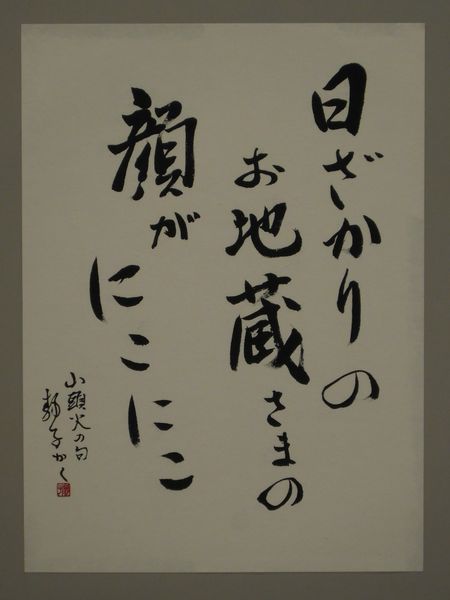 日ざかりの
お地蔵さまの
顔が
にこにこ
山頭火の句
子かく